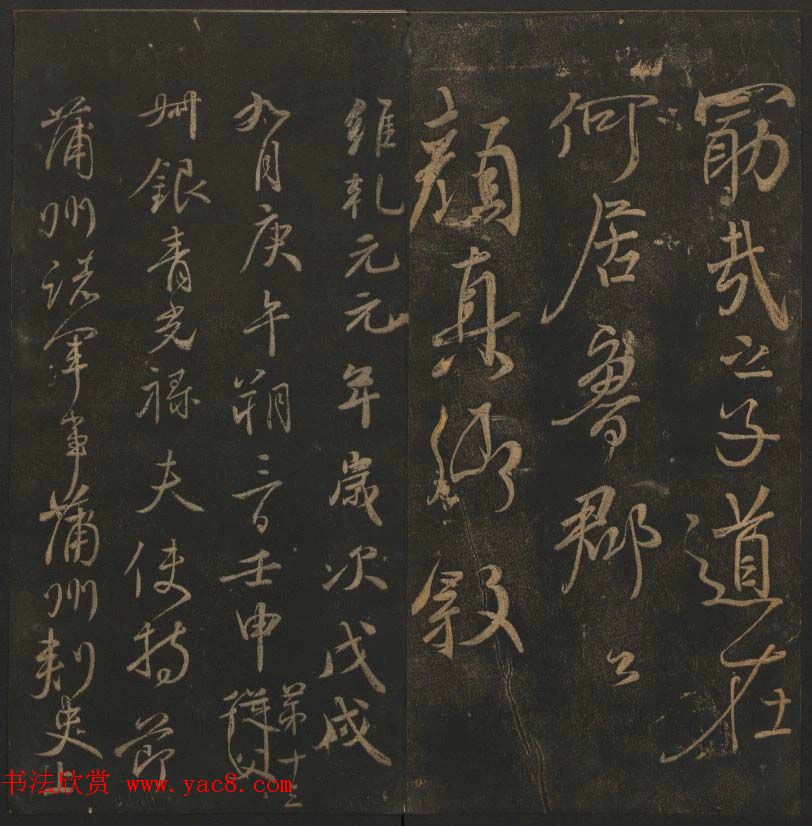 勗哉之子道在
何居魯郡公
顏真卿叙
維乾元元年歲次戊戌
九月庚午朔三日壬申第十三從父
銀青光祿夫使持節
蒲州諸軍事蒲州刺史上
书法欣赏 www.yac8.com